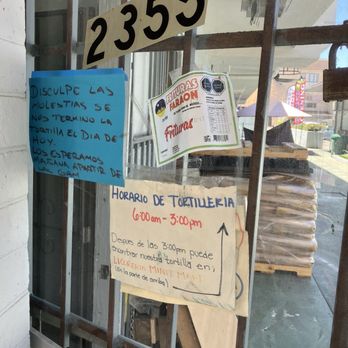 2355
DISCULPE LAS
MOLESTIAS SE
NOS TERMINO LA
TORTILLA EL DIA DE
HOY.
LOS ESPERAMOS
MAÑANA APARTIR DE
LA 6AM
FRITURAS
FARAON
Frituras
HORARIO DE TORTILLERIA
6:00am - 3:00pm
Despues de las 3:00pm puede
encontrar nuestra tortilla en;
LICORERIA MINIT MART
(en la parte de arriba)